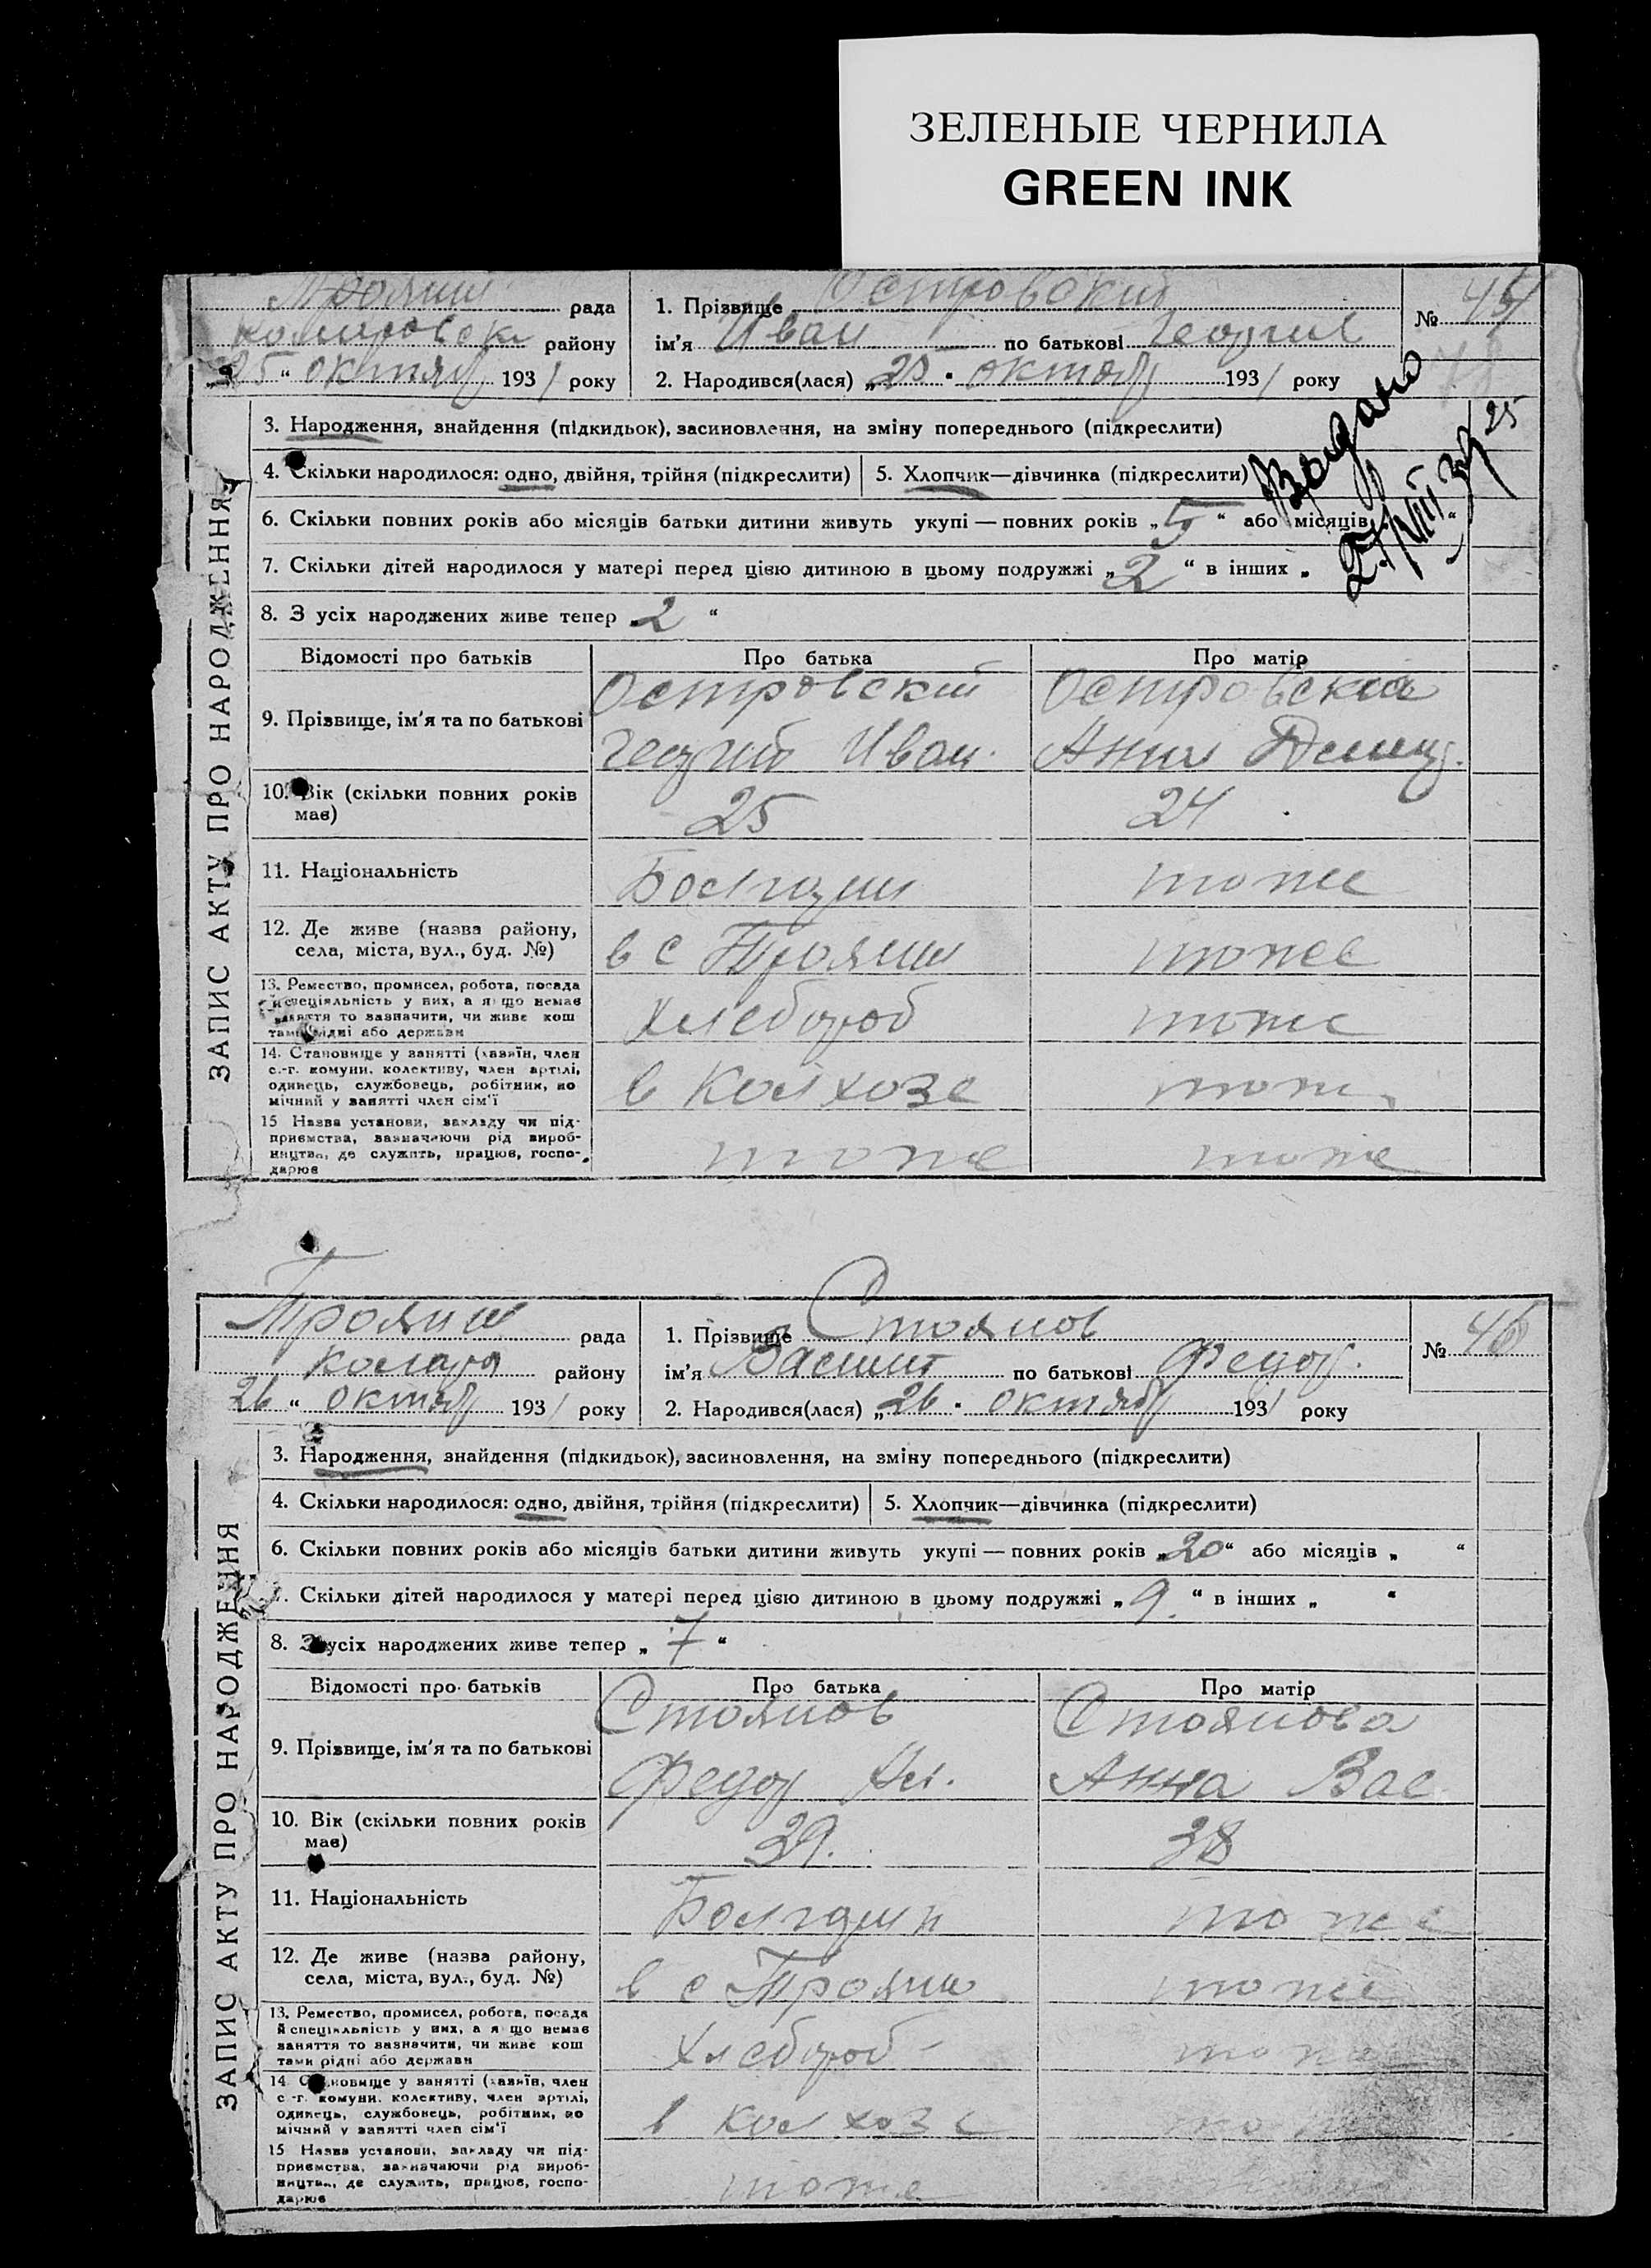 ЗЕЛЕНЫЕ ЧЕРНИЛА
GREEN INK
Троян рада
район у
25 " октяб 1931 року
1. Прізвище Островский
ім'я Иван по батькові Георгиев
№ 45
2. Народився(лася) „25" октяб 1931 року
Видано
25
ЗАПИС АКТУ ПРО НАРОДЖЕННЯ
3. Народження, знайдення (підкидьок), засиновлення, на зміну попереднього (підкреслити)
4. Скільки народилося: одно, двійня, трійня (підкреслити) 5. Хлопчик—дівчинка (підкреслити)
6. Скільки повних років або місяців батьки дитини живуть укупі — повних років „5" або місяців
7. Скільки дітей народилося у матері перед цією дитиною в цьому подружжі „2" в інших „
8. З усіх народжених живе тепер 2 "
Відомості про батьків Про батька Про матір
9. Прізвище, ім'я та по батькові
Островский Островская
Георгий Иван. Анна
10. Вік (скільки повних років має) 25 24
11. Національність Болгарин тоже
12. Де живе (назва району, села, міста, вул., буд. №) в с Троян тоже
13. Ремество, промисел, робота, посада й спеціяльність у них, а якщо немає заняття то зазначити, чи живе коштами рідні або держави Хлебороб тоже
14. Становище у занятті (хазяїн, член с.-г. комуни, колективу, член артілі, одинець, службовець, робітник, помічний у занятті член сім'ї в колхозе тоже
15 Назва установи, закладу чи підприємства, зазначаючи рід виробництва, де служить, працює, господарює тоже тоже
Троян рада
району
26 " октяб 1931 року
1. Прізвище Стоянов
ім'я Василий по батькові Федор.
№ 46
2. Народився(лася) „26" октяб 1931 року
ЗАПИС АКТУ ПРО НАРОДЖЕННЯ
3. Народження, знайдення (підкидьок), засиновлення, на зміну попереднього (підкреслити)
4. Скільки народилося: одно, двійня, трійня (підкреслити) 5. Хлопчик—дівчинка (підкреслити)
6. Скільки повних років або місяців батьки дитини живуть укупі — повних років „20" або місяців „ "
7. Скільки дітей народилося у матері перед цією дитиною в цьому подружжі „9." в інших „ "
8. З усіх народжених живе тепер „7"
Відомості про батьків Про батька Про матір
9. Прізвище, ім'я та по батькові
Стоянов Стоянова
Федор Анна Вас
10. Вік (скільки повних років має) 39. 38
11. Національність Болгарин тоже
12. Де живе (назва району, села, міста, вул., буд. №) в с Троян тоже
13. Ремество, промисел, робота, посада й спеціяльність у них, а якщо немає заняття то зазначити, чи живе коштами рідні або держави Хлебороб тоже
14. Становище у занятті (хазяїн, член с.-г. комуни, колективу, член артілі, одинець, службовець, робітник, помічний у занятті член сім'ї в колхозе тоже
15 Назва установи, закладу чи підприємства, зазначаючи рід виробництва, де служить, працює, господарює тоже